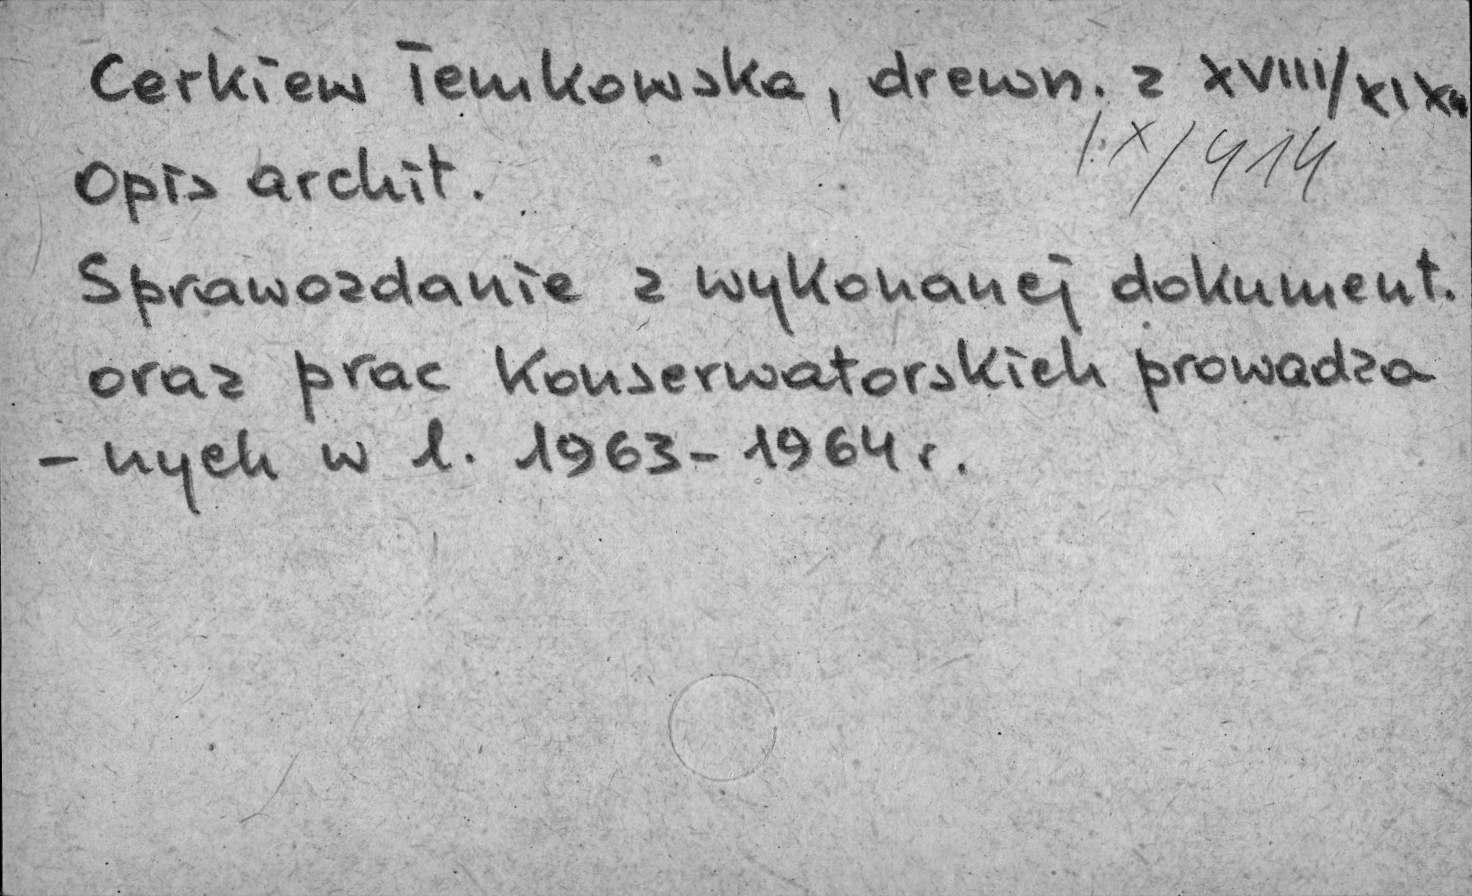 Cerkiew łemkowska, drewn. z XVIII/XIXw
IX/414
Opis archit.
Sprawozdanie z wykonanej dokument.
oraz prac konserwatorskich prowadza
- nych w l. 1963-1964 r.